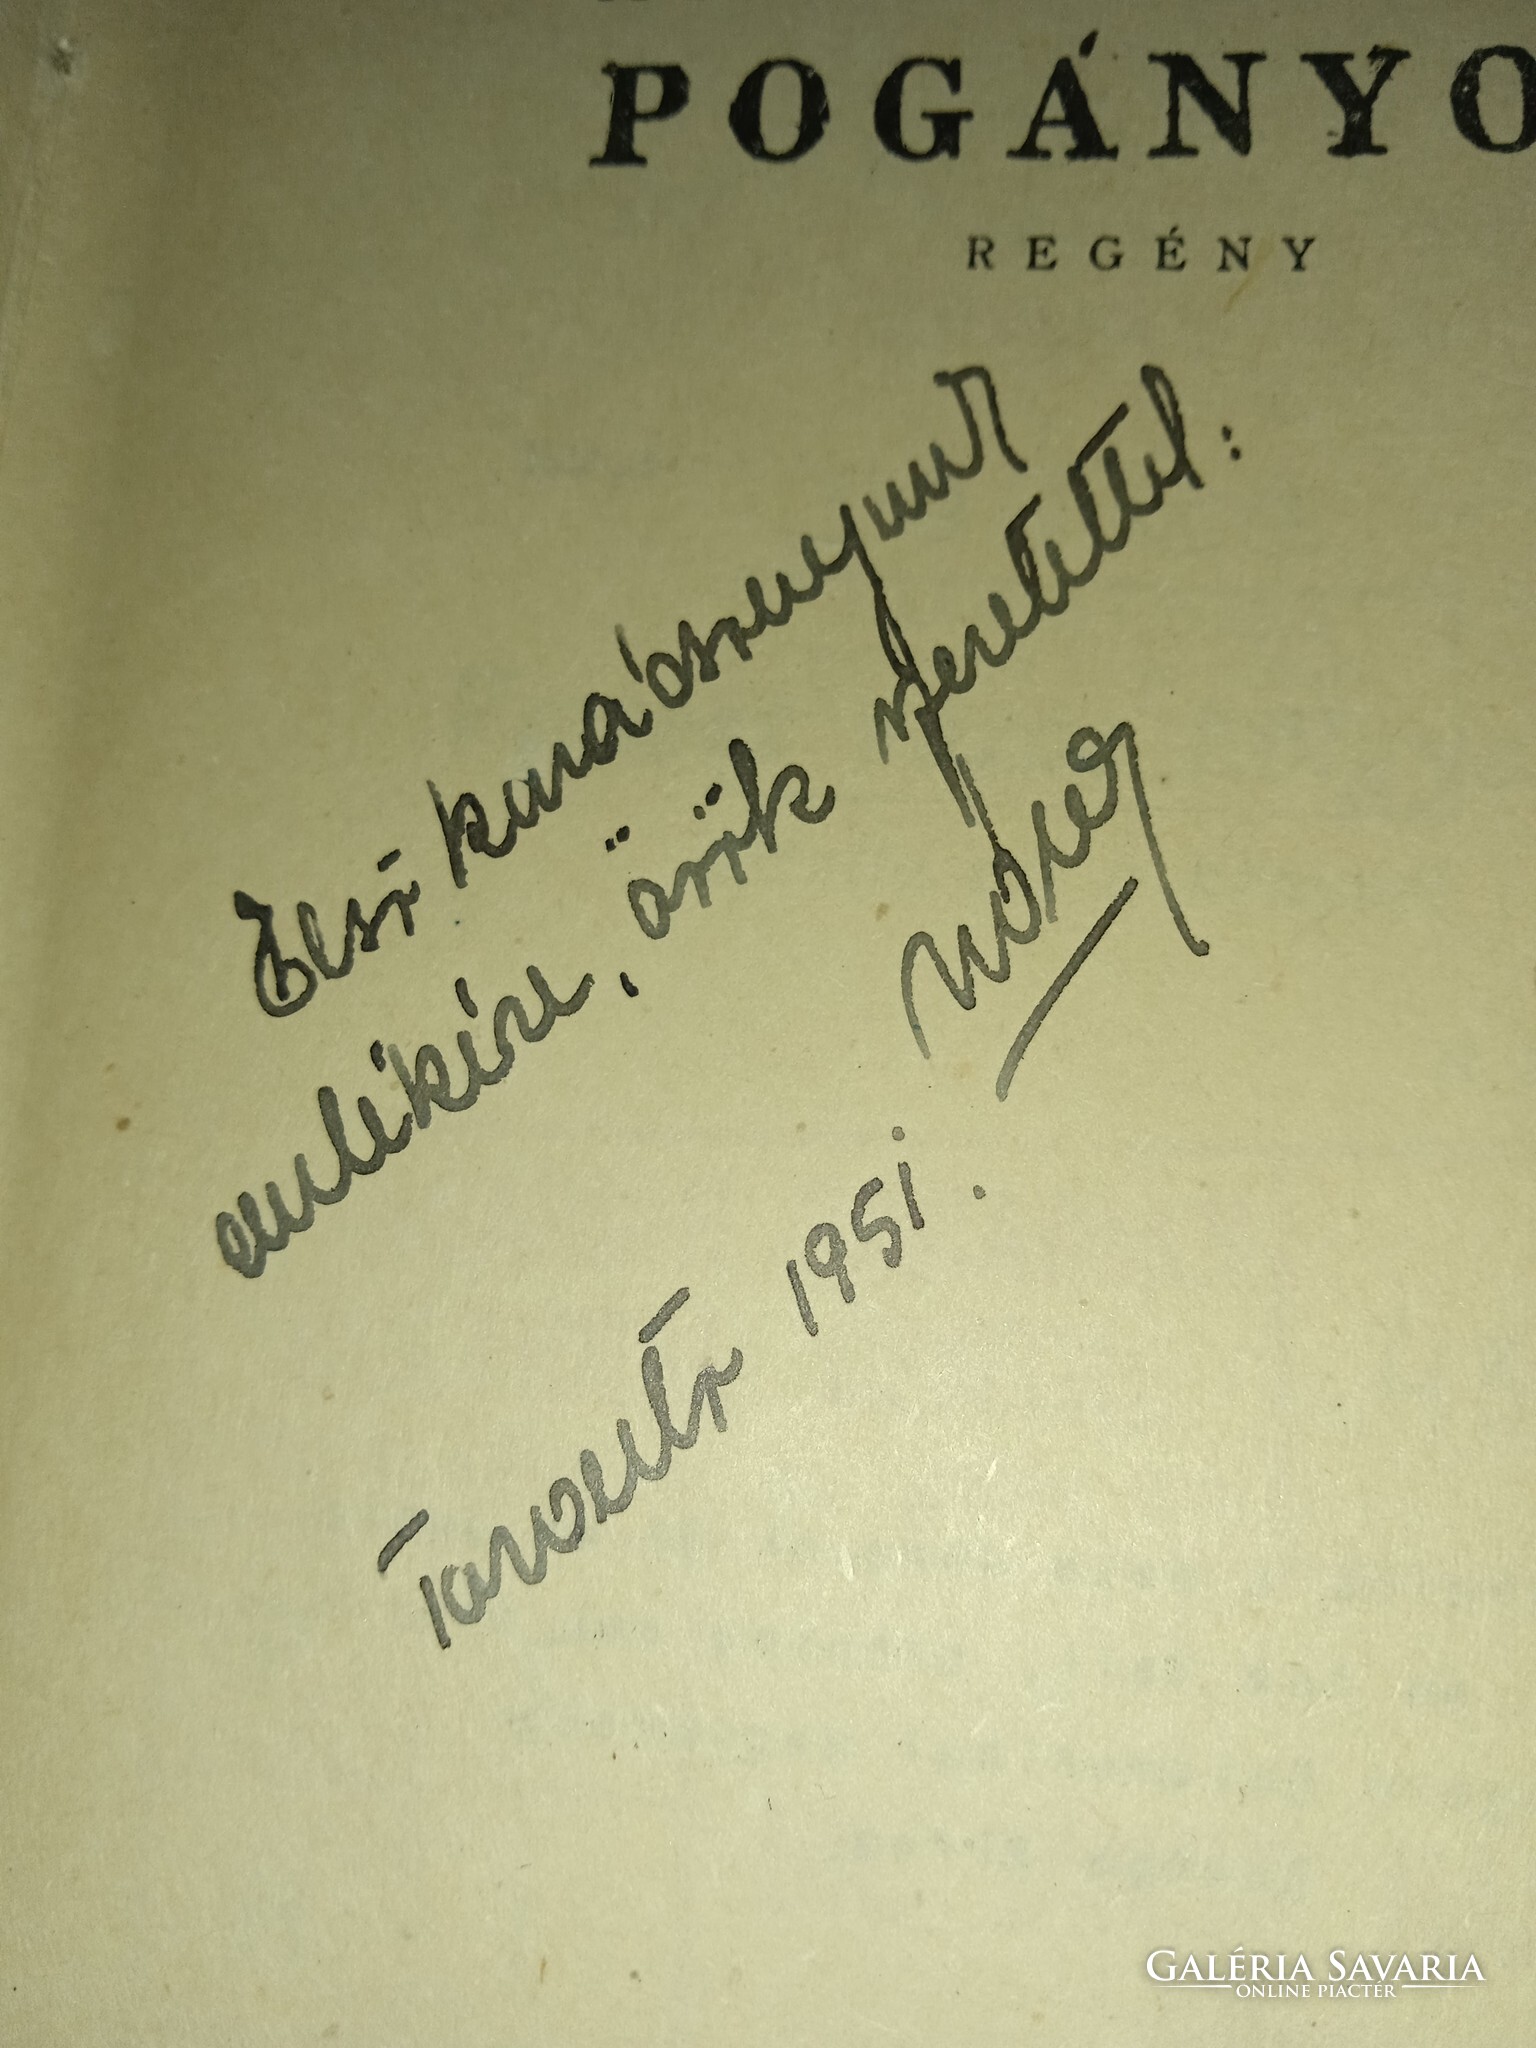 POGÁNYO
REGÉNY
Első karácsonyunk
emlékére, örök szeretettel:
1951.
GALÉRIA SAVARIA
ONLINE PIACTÉR